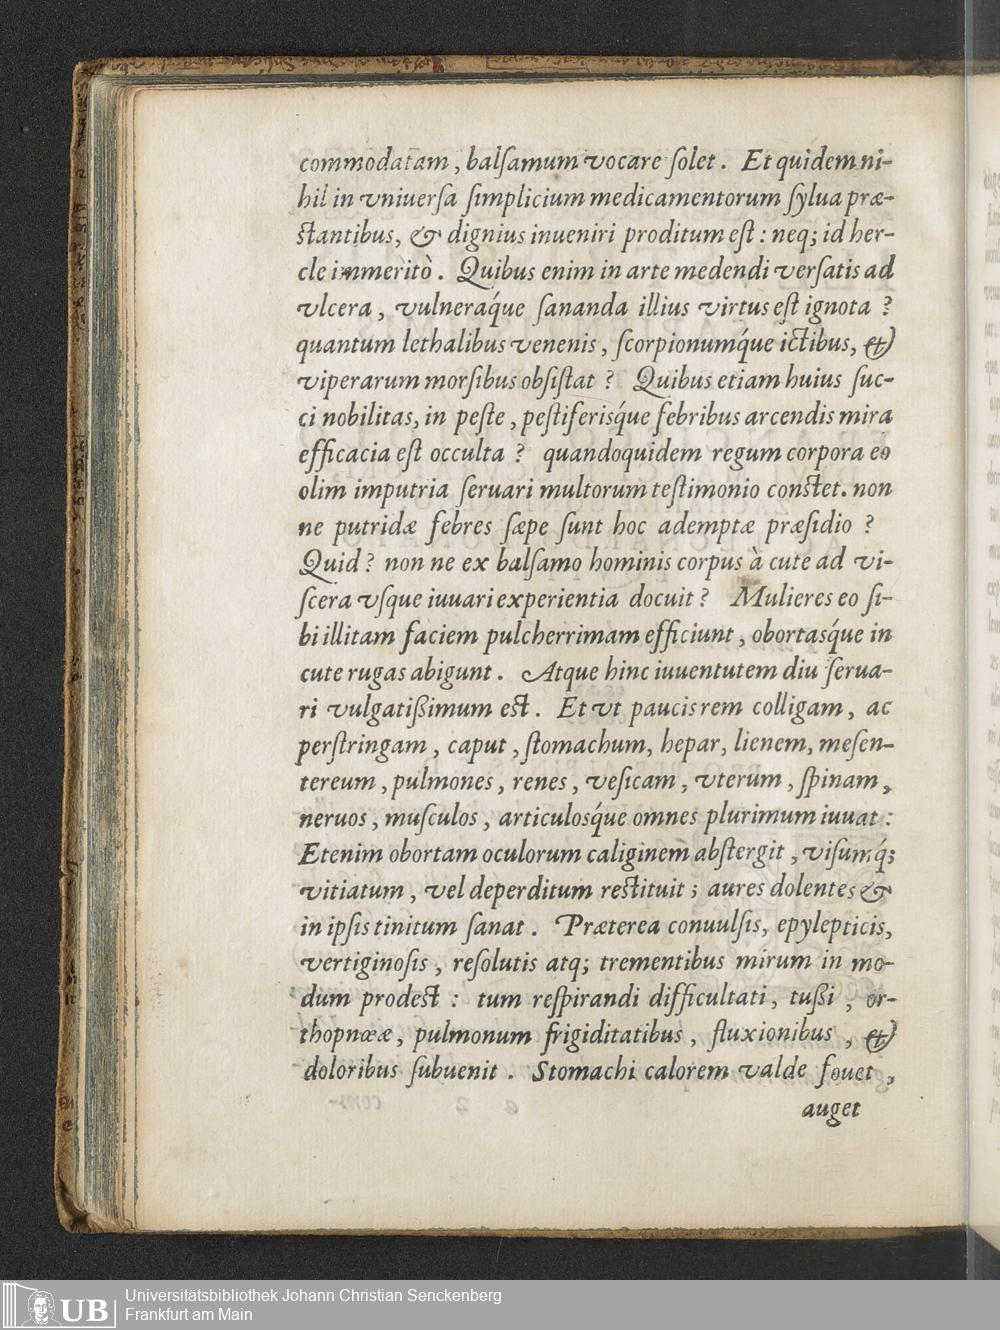 commodatam, balſamum vocare ſolet. Et quidem ni-
hil in vniuerſa ſimplicium medicamentorum ſylua præ-
ſtantibus, & dignius inueniri proditum eſt: neq; id her-
cle immeritò. Quibus enim in arte medendi verſatis ad
vlcera, vulneraq́ue ſananda illius virtus eſt ignota?
quantum lethalibus venenis, ſcorpionumq́ue ictibus, &
viperarum morſibus obſiſtat? Quibus etiam huius ſuc-
ci nobilitas, in peſte, peſtiferisq́ue febribus arcendis mira
efficacia eſt occulta? quandoquidem regum corpora eo
olim imputria ſeruari multorum teſtimonio conſtet. non
ne putridæ febres ſæpe ſunt hoc ademptæ præſidio?
Quid? non ne ex balſamo hominis corpus à cute ad vi-
ſcera vſque iuuari experientia docuit? Mulieres eo ſi-
bi illitam faciem pulcherrimam efficiunt, obortasq́ue in
cute rugas abigunt. Atque hinc iuuentutem diu ſerua-
ri vulgatißimum eſt. Et vt paucis rem colligam, ac
perſtringam, caput, ſtomachum, hepar, lienem, meſen-
tereum, pulmones, renes, veſicam, vterum, ſpinam,
neruos, muſculos, articulosq́ue omnes plurimum iuuat:
Etenim obortam oculorum caliginem abſtergit, viſumq́;
vitiatum, vel deperditum reſtituit; aures dolentes &
in ipſis tinitum ſanat. Præterea conuulſis, epylepticis,
vertiginoſis, reſolutis atq; trementibus mirum in mo-
dum prodeſt: tum reſpirandi difficultati, tußi, or-
thopnœæ, pulmonum frigiditatibus, fluxionibus, &
doloribus ſubuenit. Stomachi calorem valde fouet,
auget
UB
Universitätsbibliothek Johann Christian Senckenberg
Frankfurt am Main